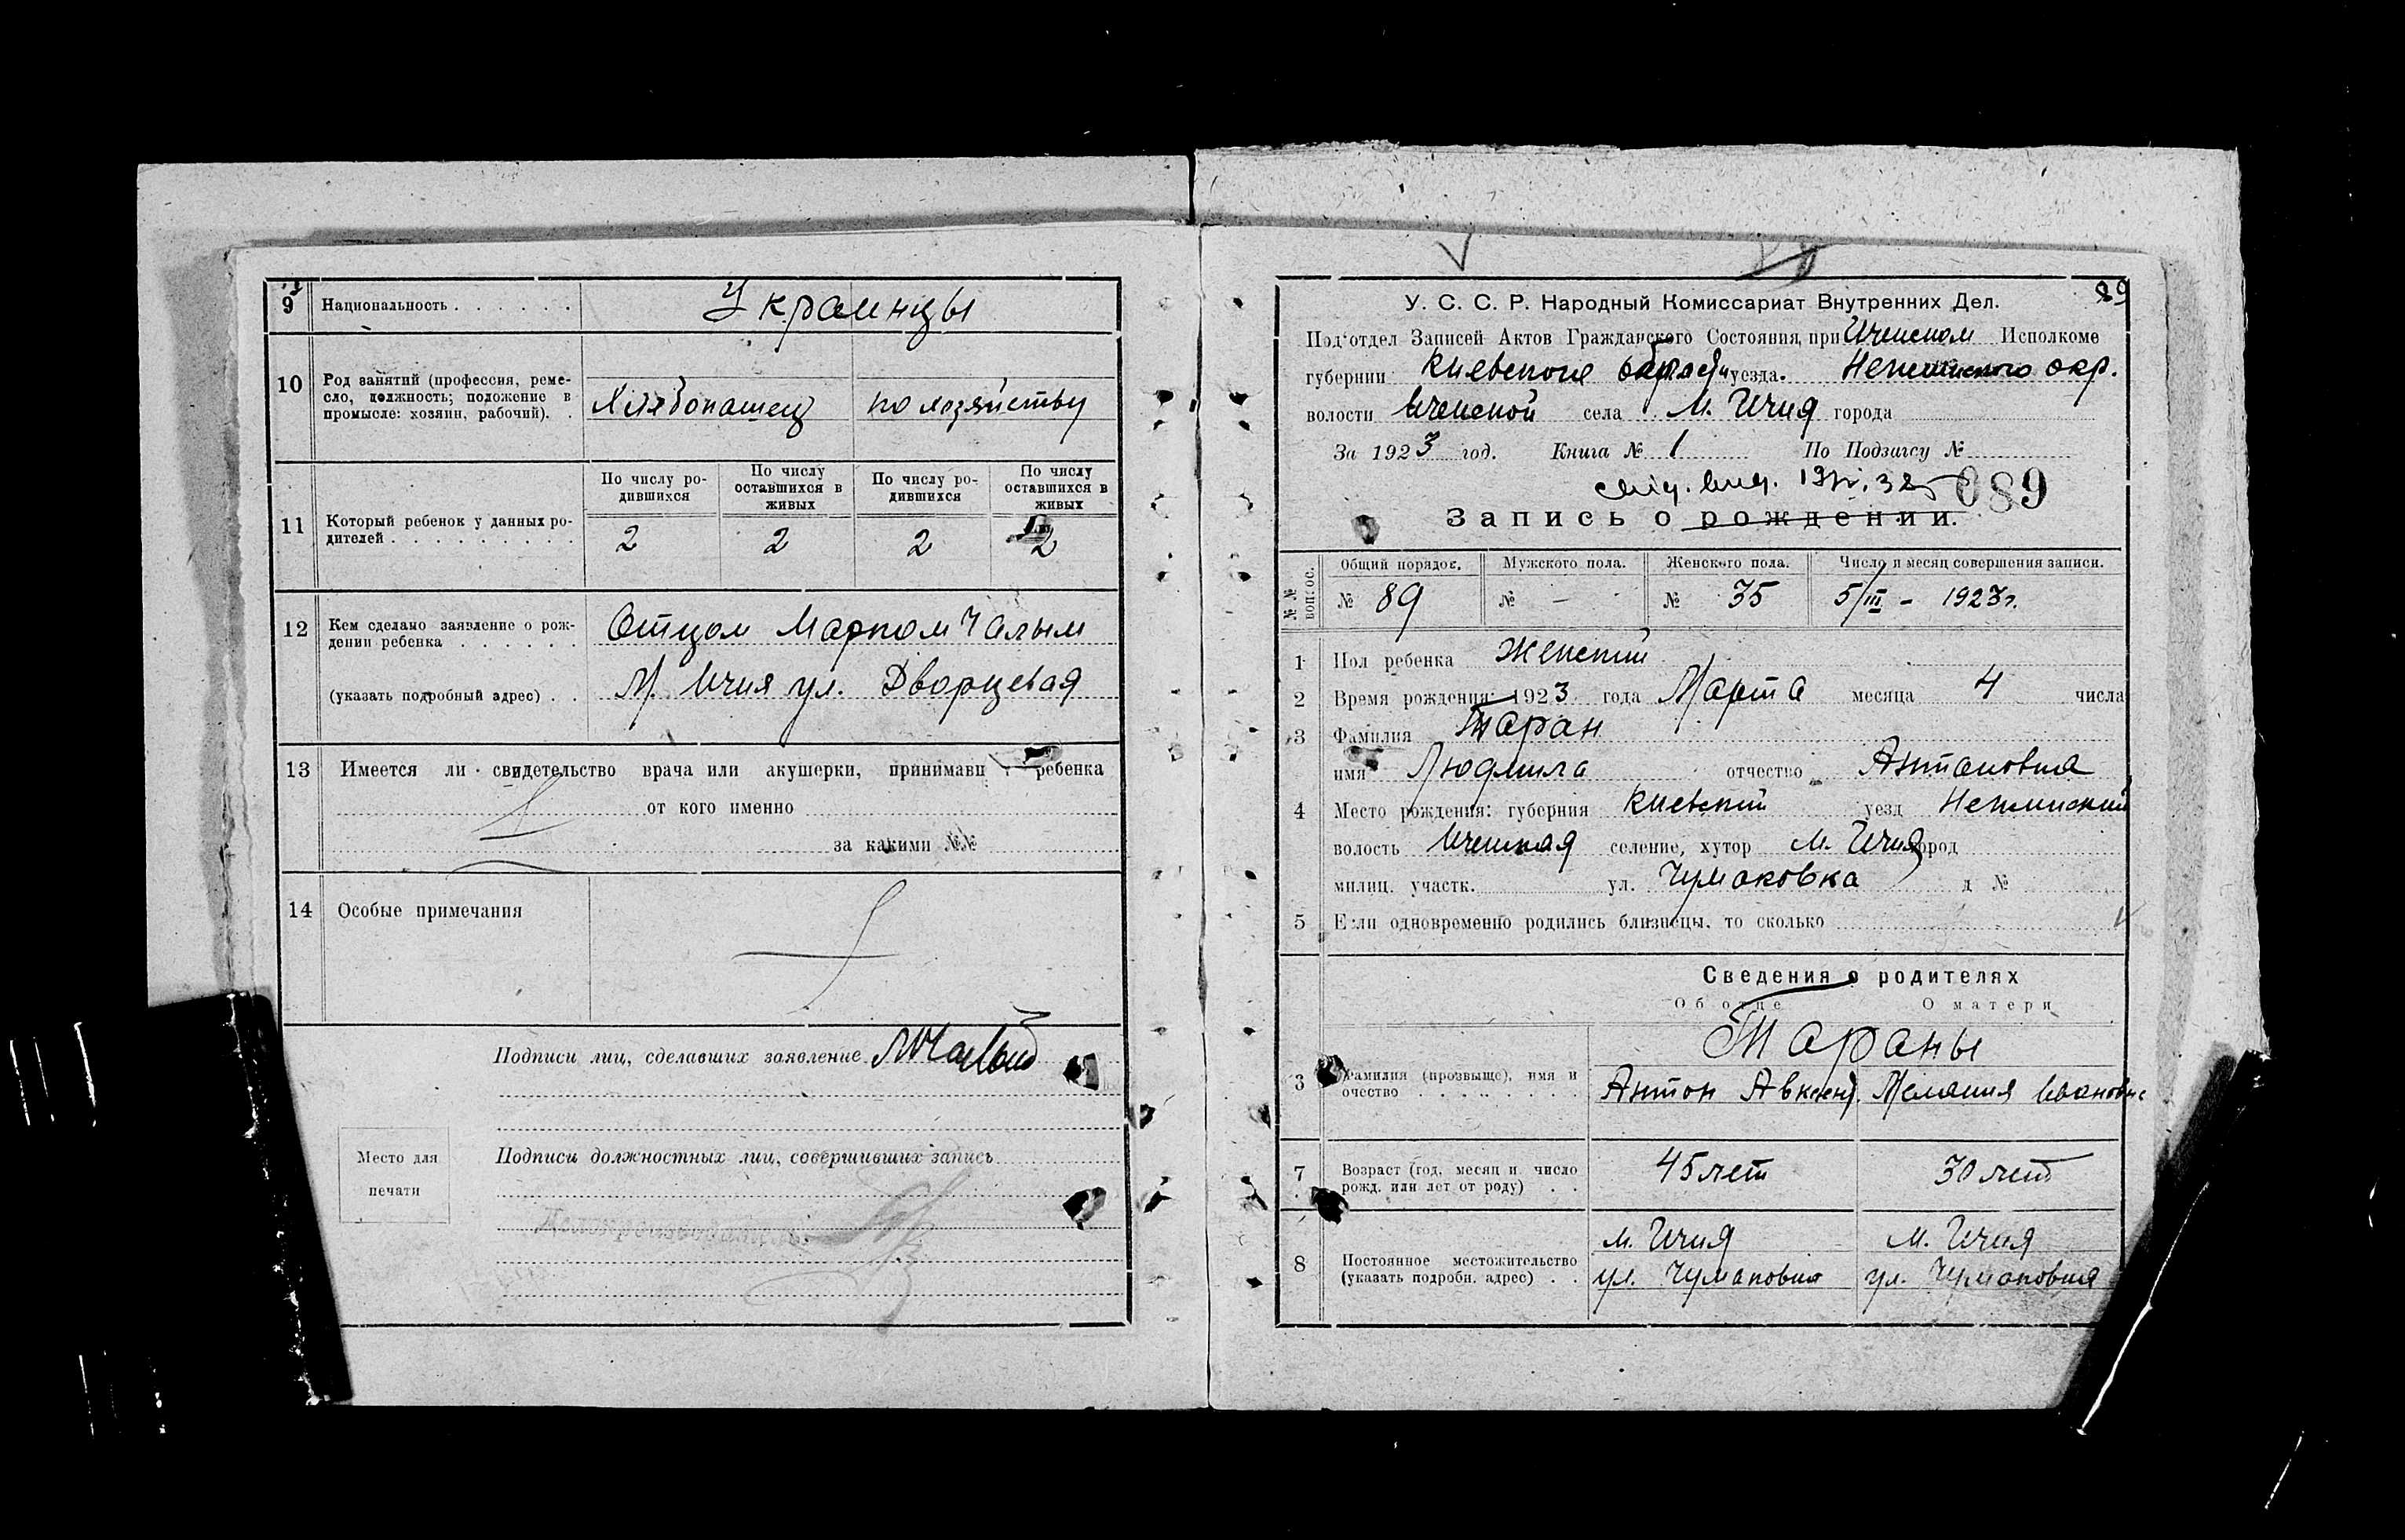 9 Национальность . . . . . . Украинцы
10 Род занятий (профессия, реме-
сло, должность; положение в
промысле: хозяин, рабочий). .
Хлебопашец по хозяйству
По числу ро-
дившихся
По числу
оставшихся в
живых
По числу ро-
дившихся
По числу
оставшихся в
живых
11 Который ребенок у данных ро-
дителей . . . . . . . . .
2 2 2 2
12 Кем сделано заявление о рож-
дении ребенка . . . . . .
Отцом Марком Чалым
(указать подробный адрес) . . М. Ичня ул. Дворцевая
13 Имеется ли свидетельство врача или акушерки, ребенка
от кого именно
за какими №№
14 Особые примечания
Подписи лиц, сделавших заявление МЧалый
Место для
печати
Подписи должностных лиц, совершивших запись
Делопроизводитель
89
У. С. С. Р. Народный Комиссариат Внутренних Дел.
Под'отдел Записей Актов Гражданского Состояния, при Иченском Исполкоме
губернии Киевской уезда. Неженского окр.
волости Иченской села М. Ичня города
За 1923 год. Книга № 1 По Подзагсу №
089
Запись о рождении.
№№ вопрос.
Общий порядов. Мужского пола. Женского пола. Число и месяц совершения записи.
№ 89 № — № 35 5/III - 1923г.
1 Пол ребенка Женский
2 Время рождения: 1923 года Марта месяца 4 числа
3 Фамилия Таран
имя Людмила отчество Антоновна
4 Место рождения: губерния Киевский уезд Нежинский
волость Иченская селение, хутор М. Ичня город
милиц. участк. ул. Чумаковка д №
5 Если одновременно родились близнецы, то сколько
Сведения о родителях
Об отце О матери
Тараны
3 Фамилия (прозвыще), имя и
очество . . . . . . . . .
Антон Авксент. Мелания Ивановна
7 Возраст (год, месяц и число
рожд. или лет от роду) . .
45 лет 30 лет
м. Ичня м. Ичня
8 Постоянное местожительство
(указать подробн. адрес) . .
ул. Чумаковка ул. Чумаковка